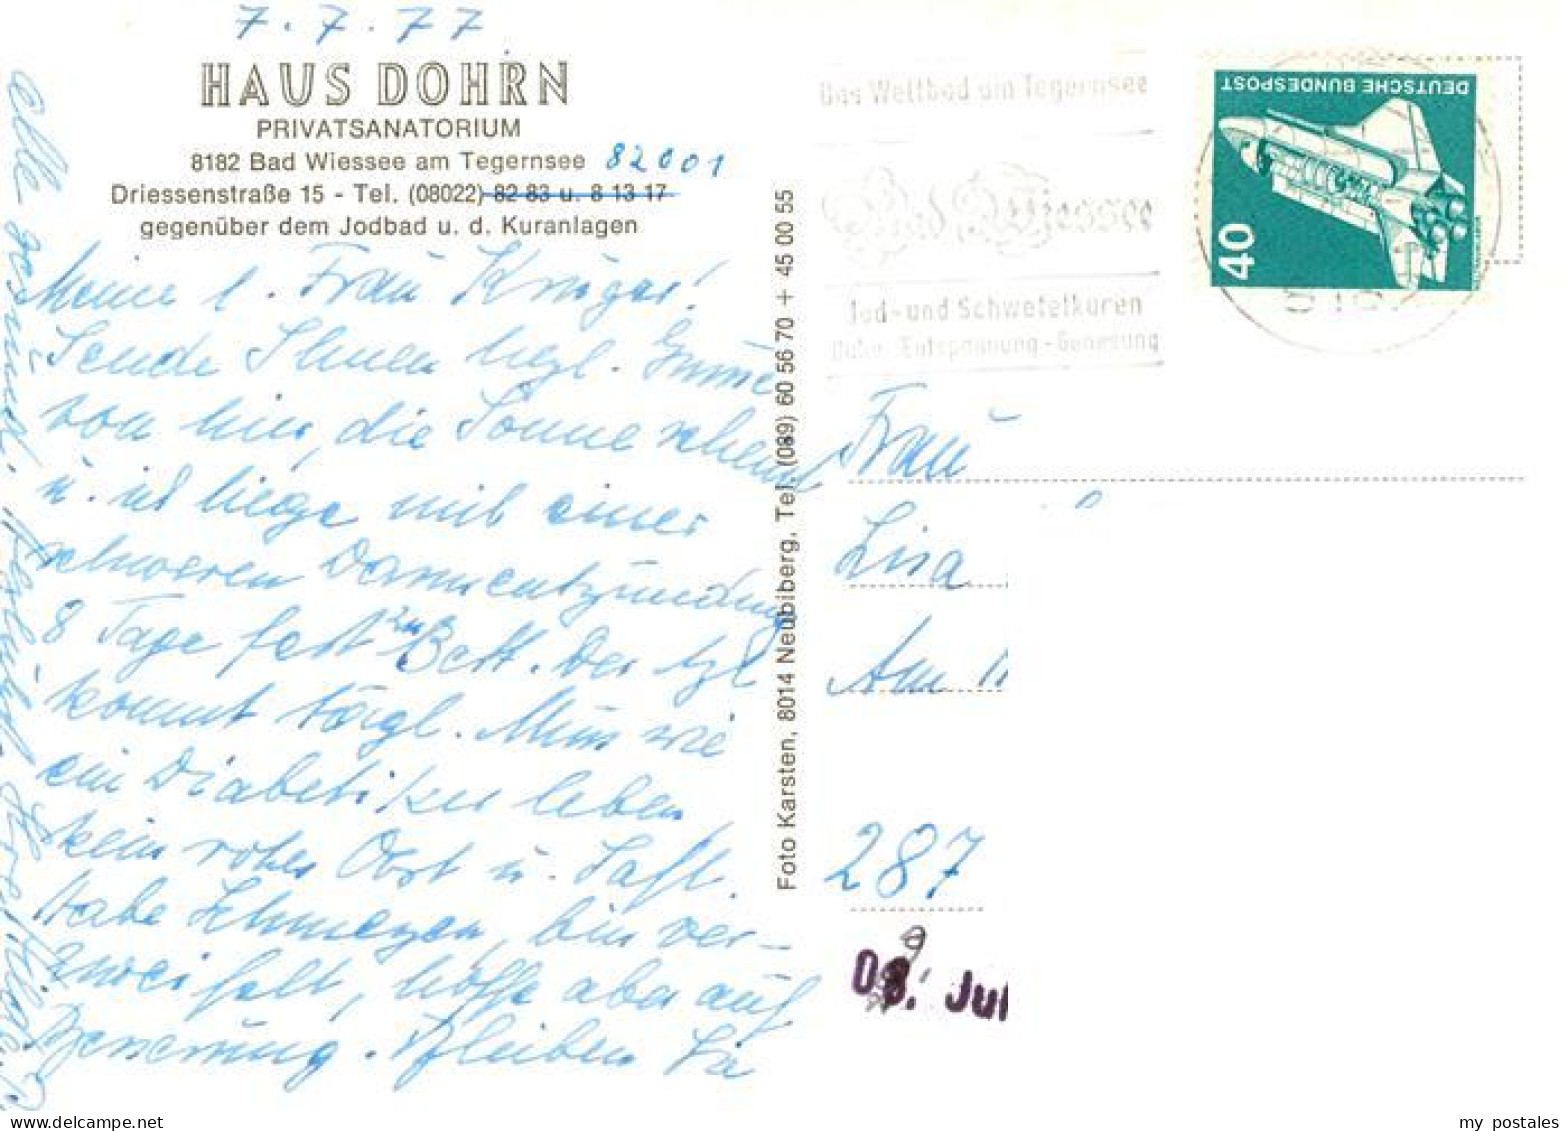 7.7.77
HAUS DOHRN
PRIVATSANATORIUM
8182 Bad Wiessee am Tegernsee 82001
Driessenstraße 15 - Tel. (08022) 82 83 u. 8 13 17
gegenüber dem Jodbad u. d. Kuranlagen
Meine l. Frau Krüger!
Sende Ihnen hzl. Grüße
von hier, die Sonne scheint
u. ich liege mit einer
schweren Darmentzündung
8 Tage fest zu Bett. Der
kommt tägl. Muss wie
ein Diabetiker leben
kein rohes Obst u. Saft.
Habe Schmerzen, bin ver-
zweifelt, hoffe aber auf
Besserung. Bleiben Sie
alle gesund. Herzlichst
Foto Karsten, 8014 Neubiberg, Tel. (089) 60 56 70 + 45 00 55
Das Weltbad am Tegernsee
Bad Wiessee
Jod- und Schwefelkuren
Ruhe - Entspannung - Genesung
DEUTSCHE BUNDESPOST
40
Frau
Lisa
Am
287
09. Jul
my postales